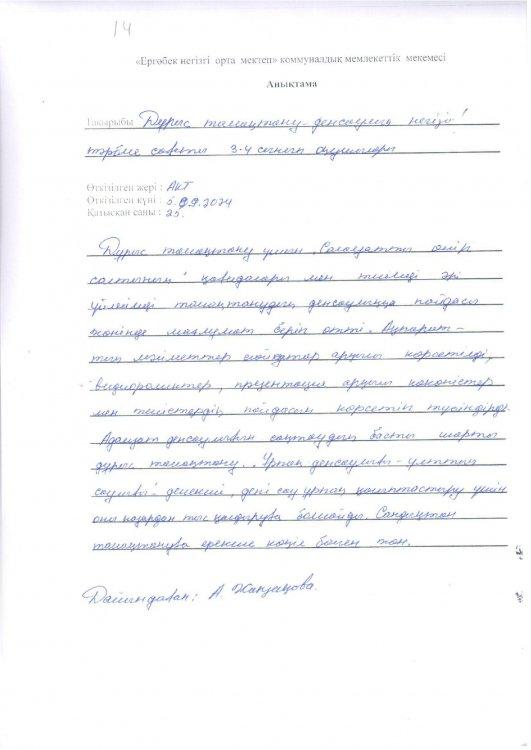 14
«Ергөбек негізгі орта мектеп» коммуналдық мемлекеттік мекемесі
Анықтама
Тақырыбы Дұрыс тамақтану - денсаулық негізі!
тәрбие сағаты 3-4 сынып оқушылары
Өткізілген жері : АКТ
Өткізілген күні : 5.09.2024
Қатысқан саны : 25.
Дұрыс тамақтану үшін „Салауатты өмір
салтының" қағидалары мен тиімді әрі
үйлесімді тамақтанудың денсаулыққа пайдасы
жөнінде мағлұмат беріп өтті. Ақпарат-
тық мәліметтер слайдтар арқылы көрсетілді,
видиороликтер, презентация арқылы көкөністер
мен жемістердің пайдасын көрсетіп түсіндірді.
Адамзат денсаулығын сақтаудың басты шарты
дұрыс тамақтану. „Ұрпақ денсаулығы - ұлттың
саулығы" демекші, дені сау ұрпақ қалыптастыру үшін
оны назардан тыс қалдыруға болмайды. Сондықтан
тамақтануға ерекше көңіл бөлген жөн.
Дайындаған: А